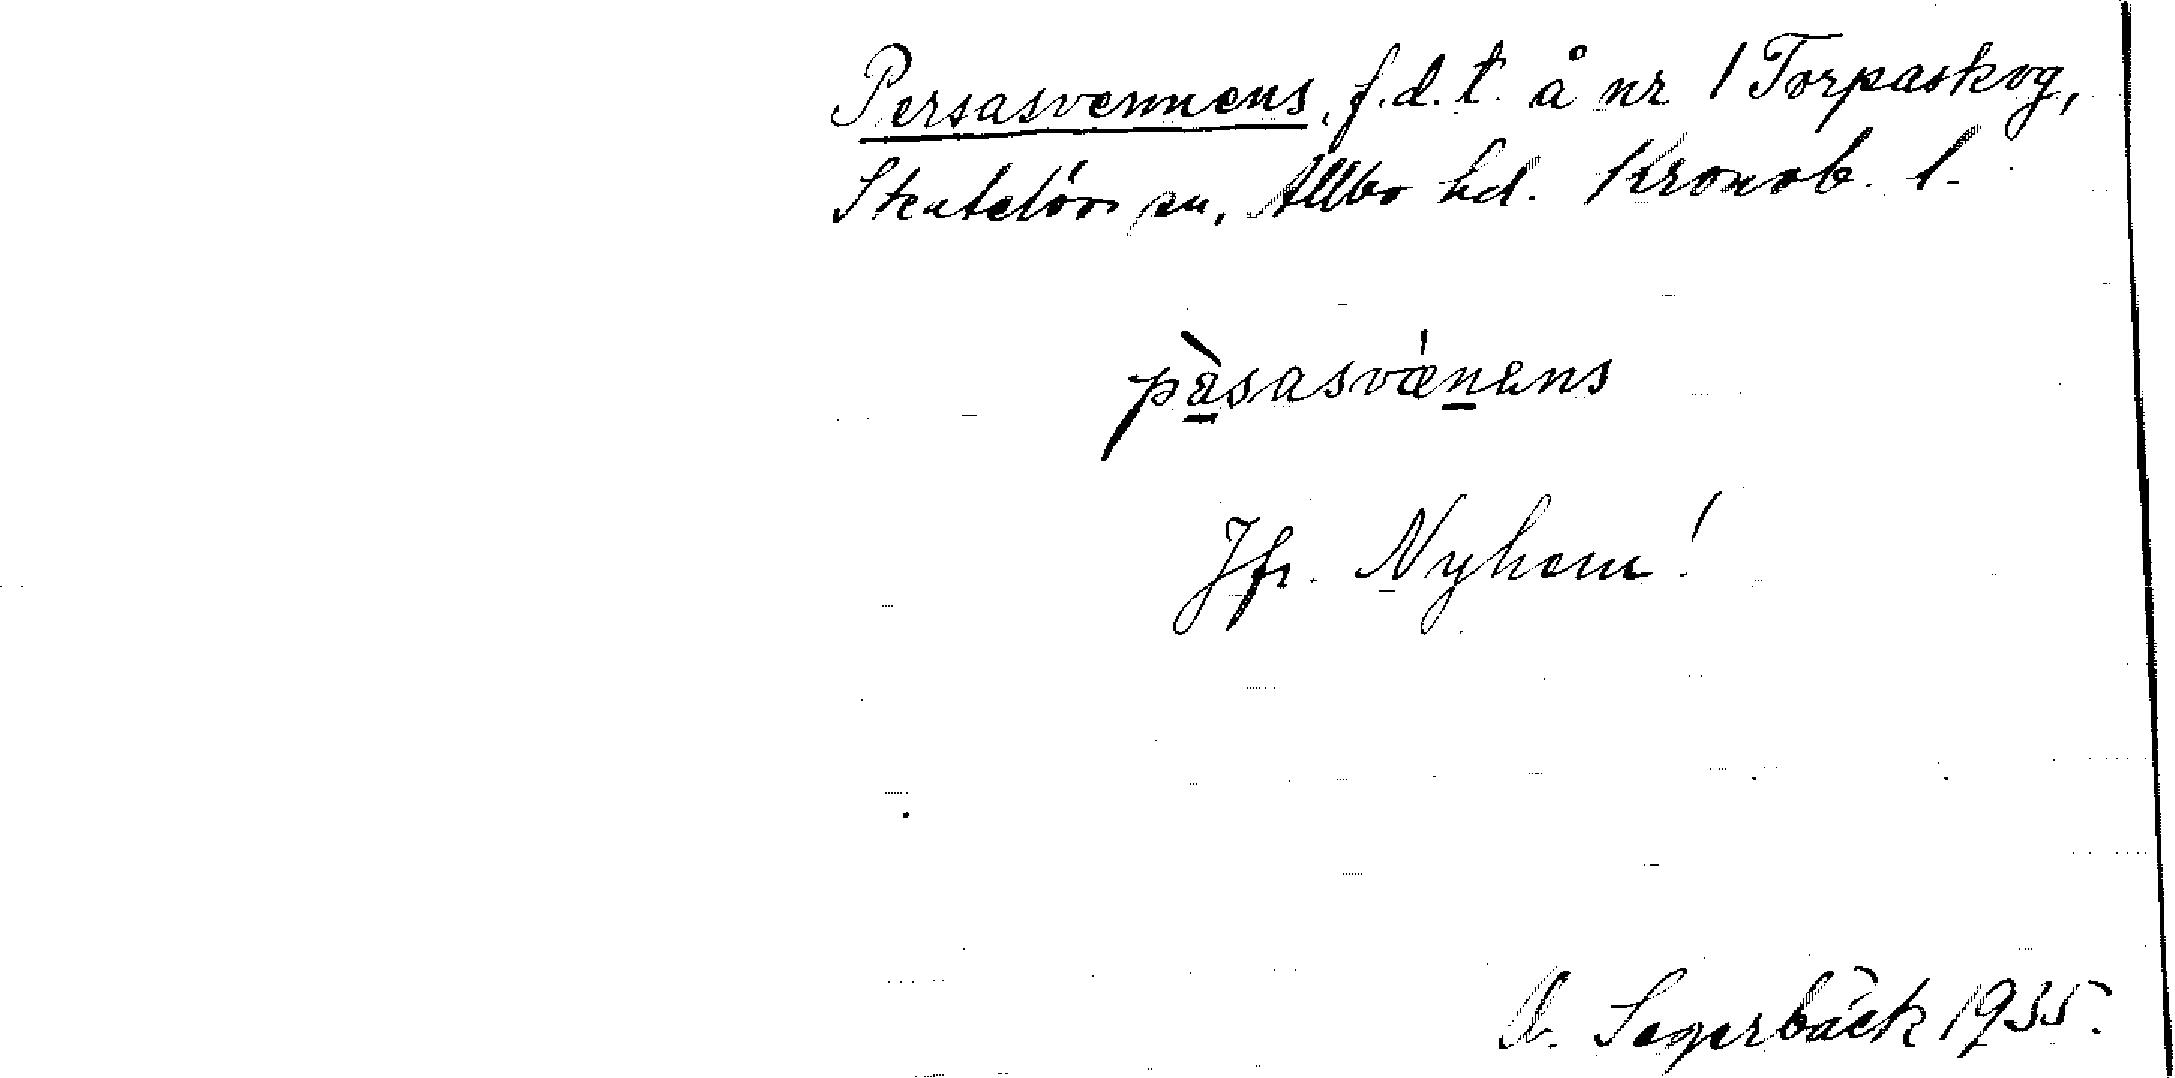 Persasvennens, f.d.t. å nr 1 Torpaskog,
Stenbelövs sn, Allbo hd. Kronob. l.
pàsasvánens
Jfr. Nyhem!
A. Segerbäck 1935.